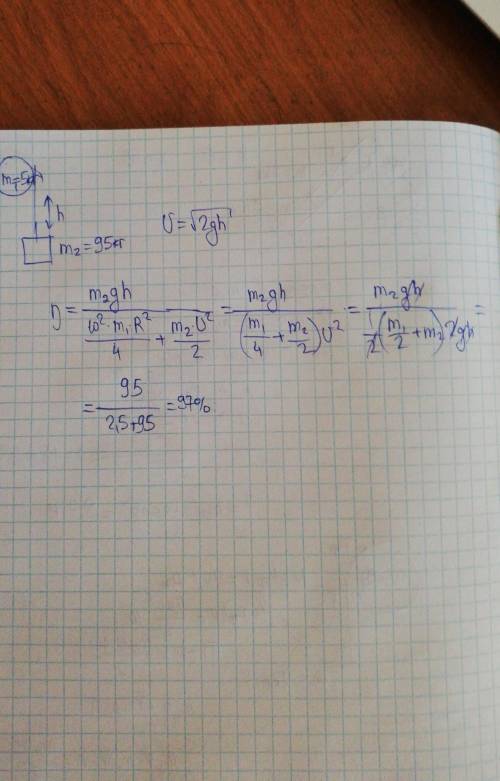 m₁=5кг
h
m₂=95кг
υ=√2gh
η = m₂gh / (ω²·m₁R²/4 + m₂·υ²/2) = m₂gh / ((m₁/4 + m₂/2)υ²) = m₂gh / (1/2(m₁/2 + m₂)2gh) =
= 95 / (2,5+95) = 97%